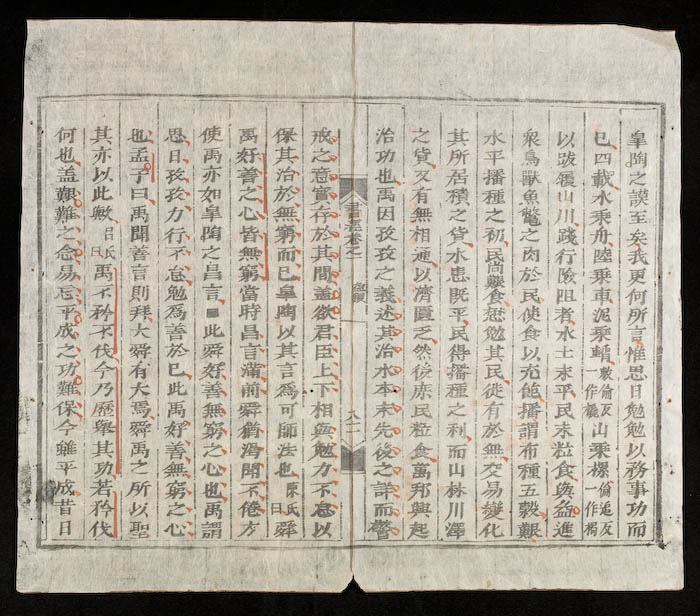 臯陶之謨至矣我更何所言惟思日勉勉以務事功而
已四載水乘舟陸乘車泥乘輴敕倫反一作橇山乘樏倫追反一作梮
以跋履山川踐行險阻者水土未平民未粒食與益進
衆鳥獸魚鼈之肉於民使食以充飽播謂布種五穀艱
水平播種之初民尚艱食懋勉其民徙有於無交易變化
其所居積之貨水患既平民得播種之利而山林川澤
之貨又有無相通以濟匱乏然後庶民粒食萬邦興起
治功也禹因孜孜之義述其治水本末先後之詳而警
書經卷之一
戒之意實存於其間盖欲君臣上下相與勉力不怠以
保其治於無窮而已臯陶以其言為可師法也陳氏曰舜
禹好善之心皆無窮當時昌言滿前舜猶渴聞不倦方
使禹亦如臯陶之昌言此舜好善無窮之心也禹謂
思日孜孜力行不怠勉為善於已此禹好善無窮之心
也孟子曰禹聞善言則拜大舜有大焉舜禹之所以聖
其亦以此歟吕氏曰禹不矜不伐今乃歷舉其功若矜伐
何也盖艱難之念易忘平成之功難保今雖平成昔日